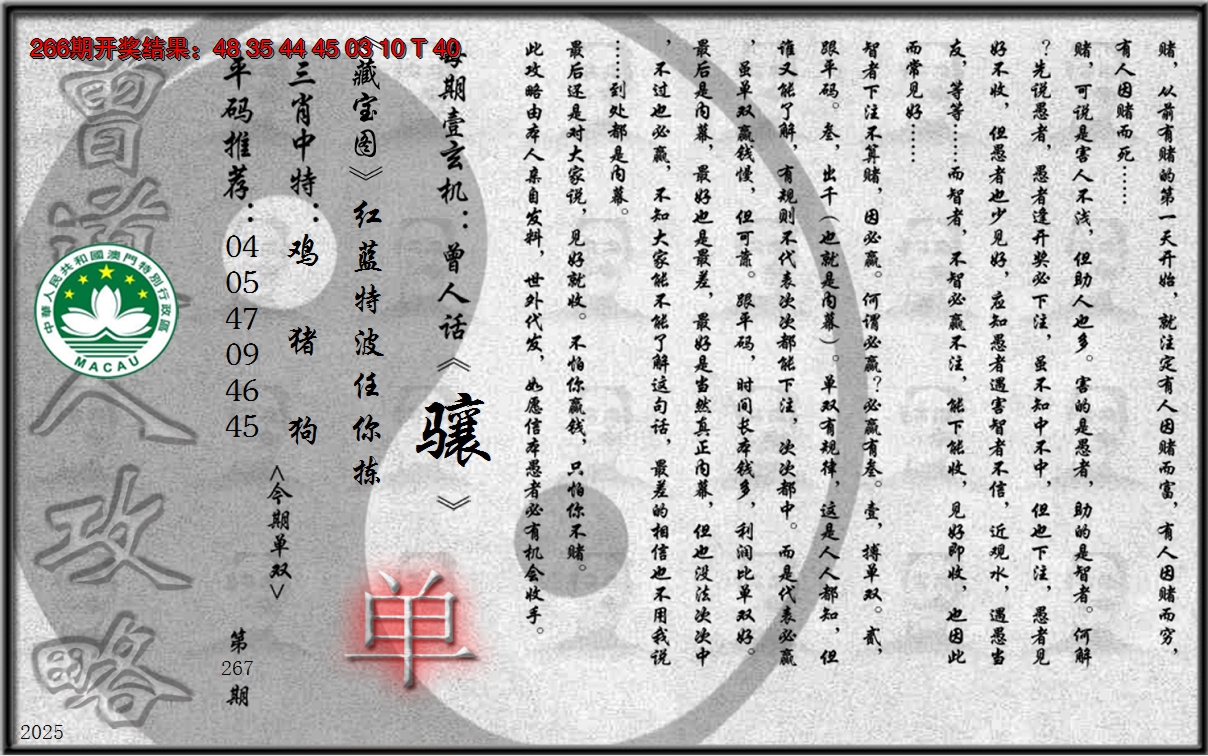 266期开奖结果：48 35 44 45 03 10 T 40
赌，从前有赌的第一天开始，就注定有人因赌而富，有人因赌而穷，
有人因赌而死……
赌，可说是害人不浅，但助人也多。害的是愚者，助的是智者。何解
？先说愚者，愚者逢开奖必下注，虽不知中不中，但也下注，愚者见
好不收，但愚者也少见好，应知愚者遇害智者不信，近观水，遇愚当
友，等等……而智者，不智必赢不注，能下能收，见好即收，也因此
而常见好……
智者下注不算赌，因必赢。何谓必赢？必赢有叁。壹，搏单双。贰，
跟平码。叁，出千（也就是内幕）。单双有规律，这是人人都知，但
谁又能了解，有规则不代表次次都能下注，次次都中。而是代表必赢
，虽单双赢钱慢，但可靠。跟平码，时间长本钱多，利润比单双好。
最后是内幕，最好也是最差，最好是当然真正内幕，但也没法次次中
，不过也必赢，不知大家能不能了解这句话，最差的相信也不用我说
……到处都是内幕。
最后还是对大家说，见好就收。不怕你赢钱，只怕你不赌。
此攻略由本人亲自发料，世外代发，如愿信本愚者必有机会收手。
每期壹玄机：曾人话《骧》
《藏宝图》红蓝特波任你拣
三肖中特：鸡 猪 狗
平码推荐：04 05 47 09 46 45
<今期单双>
单
第267期
曾道人攻略
中華人民共和國澳門特別行政區
MACAU
2025